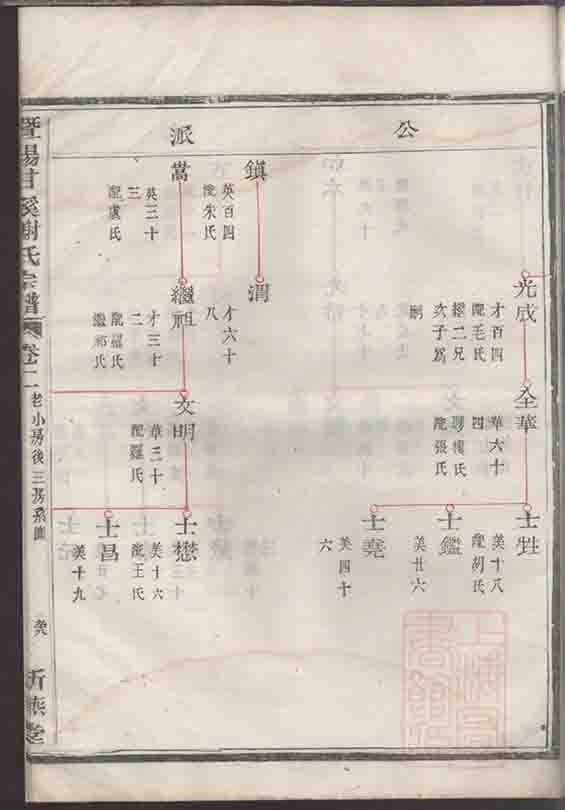 公
派
光成
才百四
配毛氏
繼二兄
次子爲
嗣
全華
華六十
四
聘樓氏
配張氏
士甡
美十八
配胡氏
士鑑
美廿六
士堯
美四十
六
鎮
英百四
配朱氏
渭
才六十
八
嵩
英三十
三
配虞氏
繼祖
才三十
二
配羅氏
繼祁氏
文明
華三十
配羅氏
士懋
美十六
配王氏
士昌
美十九
暨陽甘溪謝氏宗譜
卷二
老小房後三房系圖